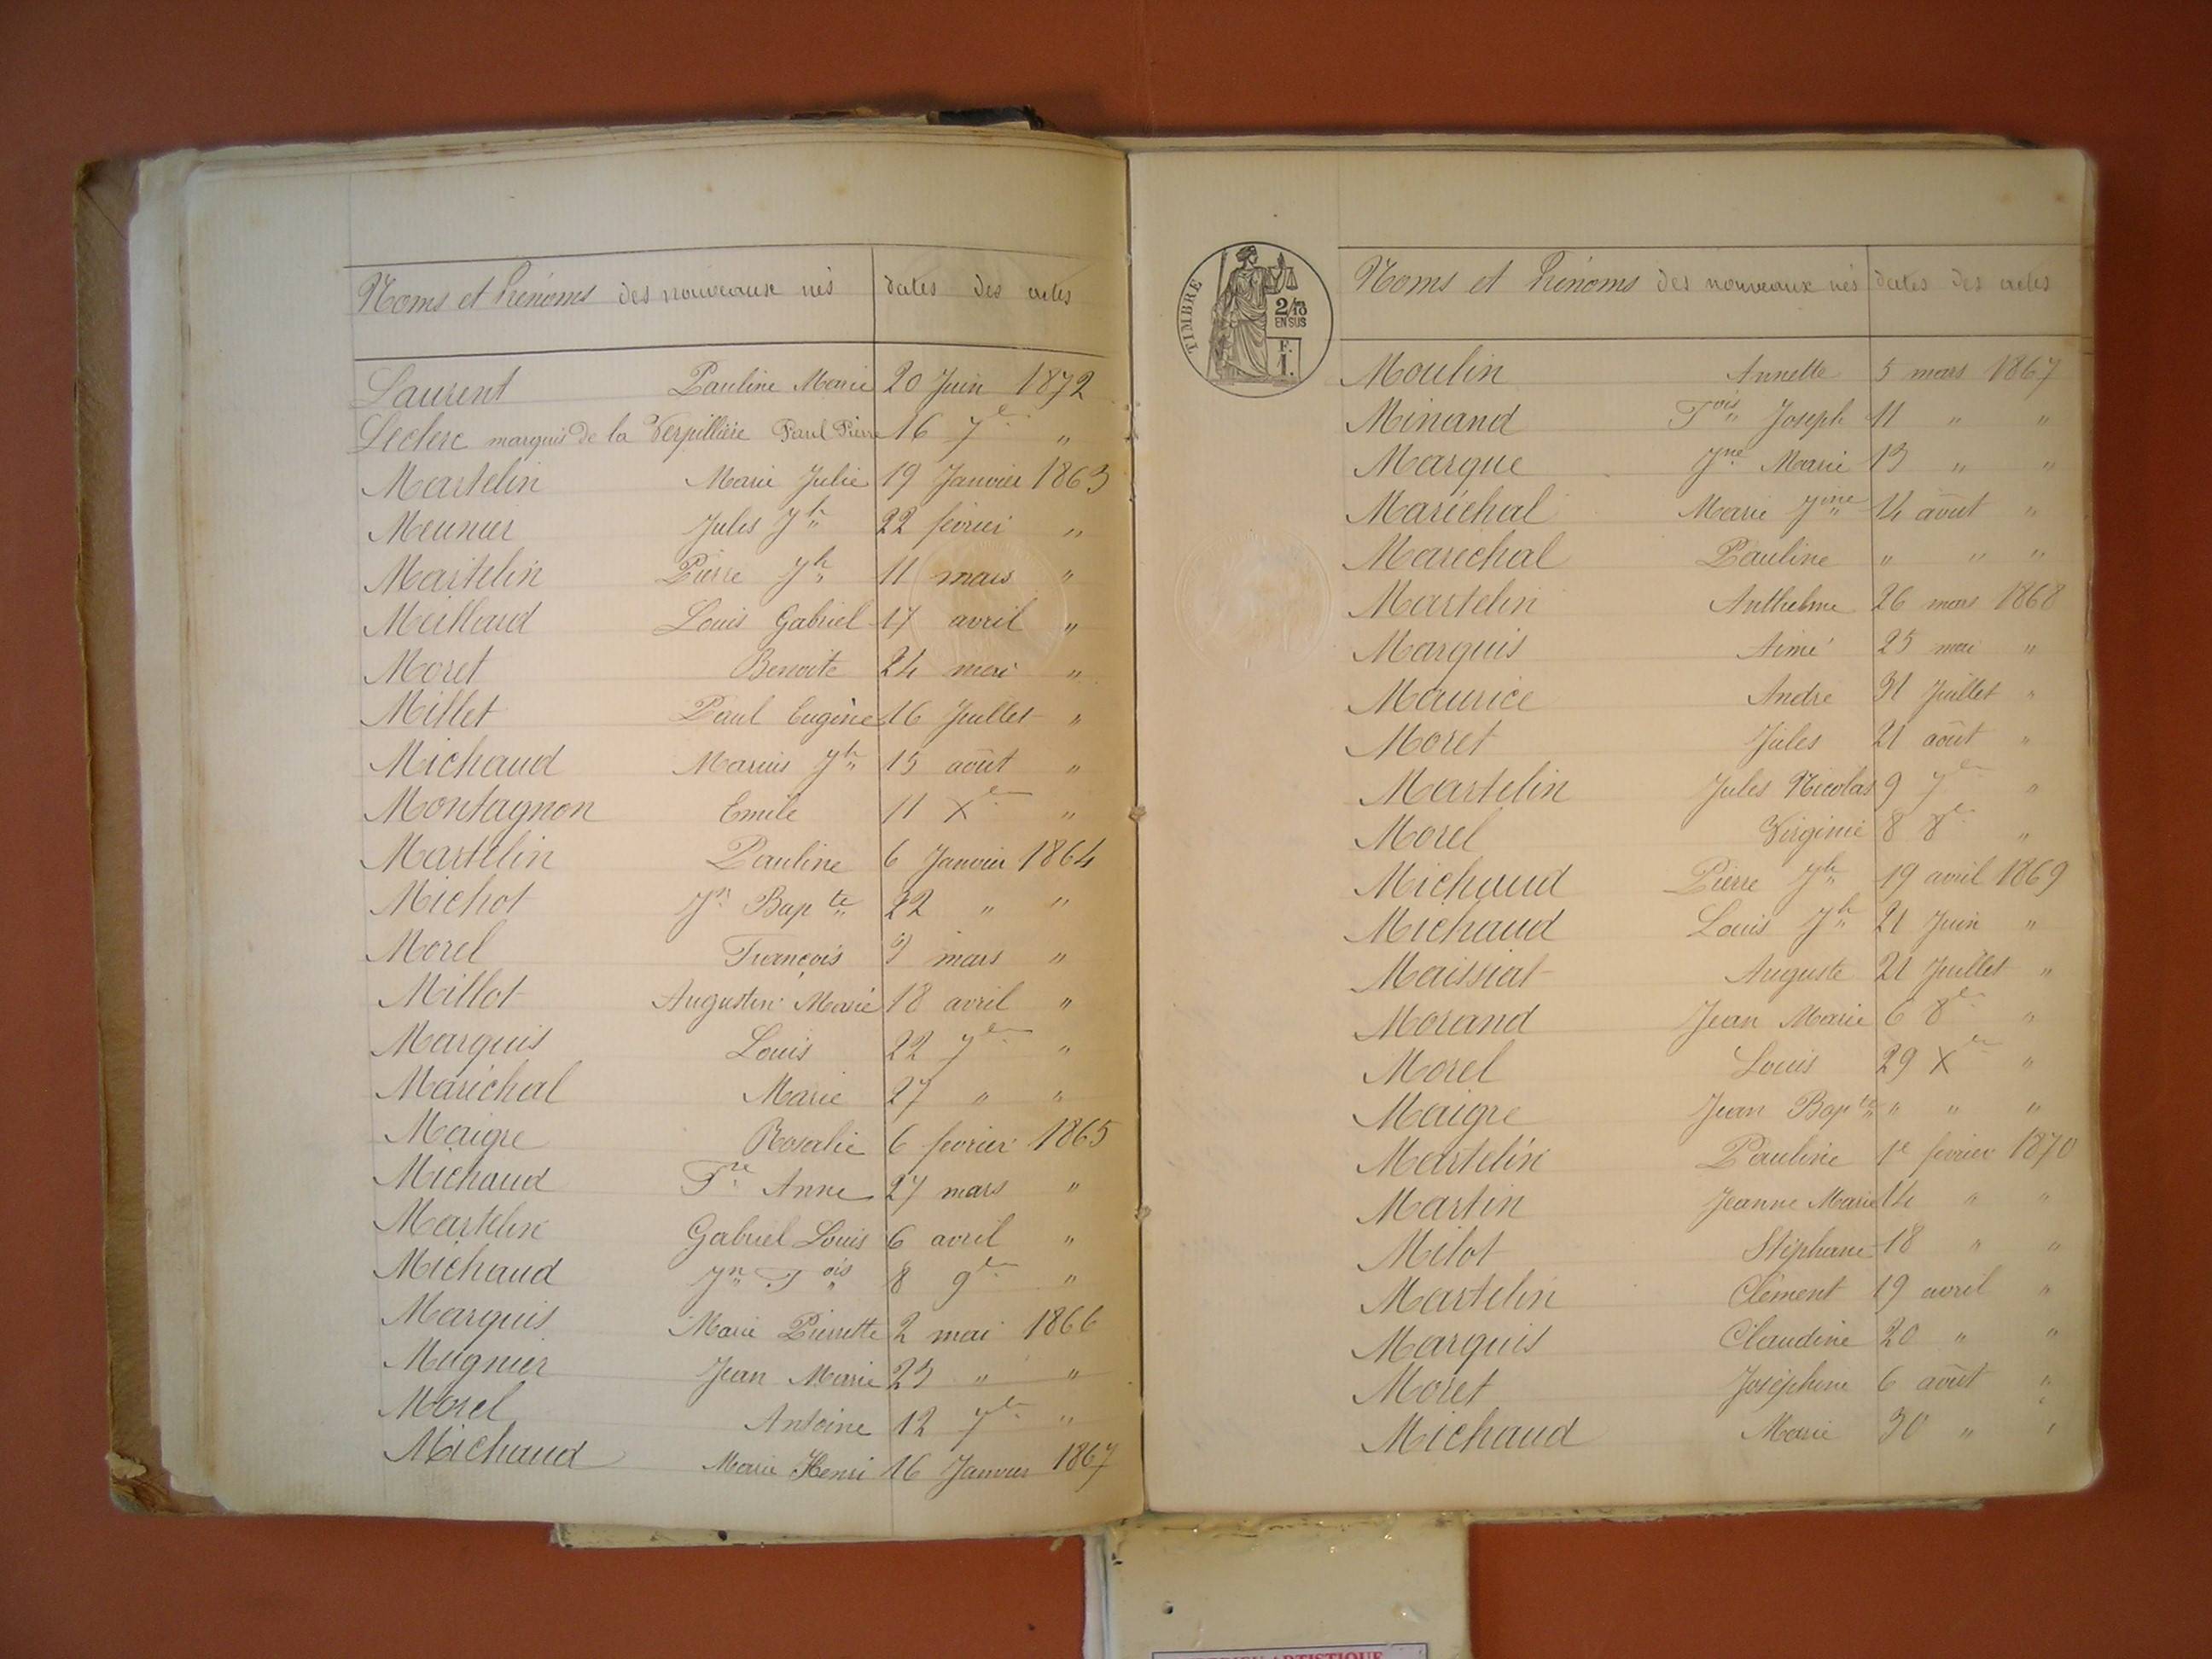 Noms et Prénoms des nouveaux nés dates des actes
Laurent Pauline Marie 20 Juin 1872
Leclerc marquis de la Verpillière Paul Pierre 16 7bre "
Martelin Marie Julie 19 Janvier 1863
Meunier Jules Jh 22 février "
Martelin Pierre Jh 11 mars "
Meilland Louis Gabriel 17 avril "
Moret Benoite 24 mai "
Millet Paul Eugène 16 Juillet "
Michaud Marius Jh 15 août "
Montagnon Emile 11 Xbre "
Martelin Pauline 6 Janvier 1864
Michot Jn Bapte 22 " "
Morel François 9 mars "
Millot Augustin Marie 18 avril "
Marquis Louis 22 7bre "
Maréchal Marie 27 " "
Maigre Rosalie 6 février 1865
Michaud Fse Anne 27 mars "
Martelin Gabriel Louis 6 avril "
Michaud Jn Fois 8 9bre "
Marquis Marie Pierrette 2 mai 1866
Mugnier Jean Marie 23 " "
Morel Antoine 12 7bre "
Michaud Marie Henri 16 Janvier 1867
TIMBRE
2/10
EN SUS
F.
1.
Noms et Prénoms des nouveaux nés dates des actes
Moulin Annette 5 mars 1867
Minand Fois Joseph 11 " "
Marque Jne Marie 13 " "
Maréchal Marie Jine 14 août "
Maréchal Pauline " " "
Martelin Anthelme 26 mars 1868
Marquis Aimé 25 mai "
Maurice Andre 31 Juillet "
Moret Jules 21 août "
Martelin Jules Nicolas 9 7bre "
Morel Virginie 8 8bre "
Michaud Pierre Jh 19 avril 1869
Michaud Louis Jh 21 Juin "
Maissiat Auguste 21 Juillet "
Morand Jean Marie 6 8bre "
Morel Louis 29 Xbre "
Maigre Jean Bapte " " "
Martelin Pauline 1e février 1870
Martin Jeanne Marie 14 " "
Milot Stéphane 18 " "
Martelin Clément 19 avril "
Marquis Claudine 20 " "
Moret Joséphine 6 août "
Michaud Marie 30 " "
ARTISTIQUE